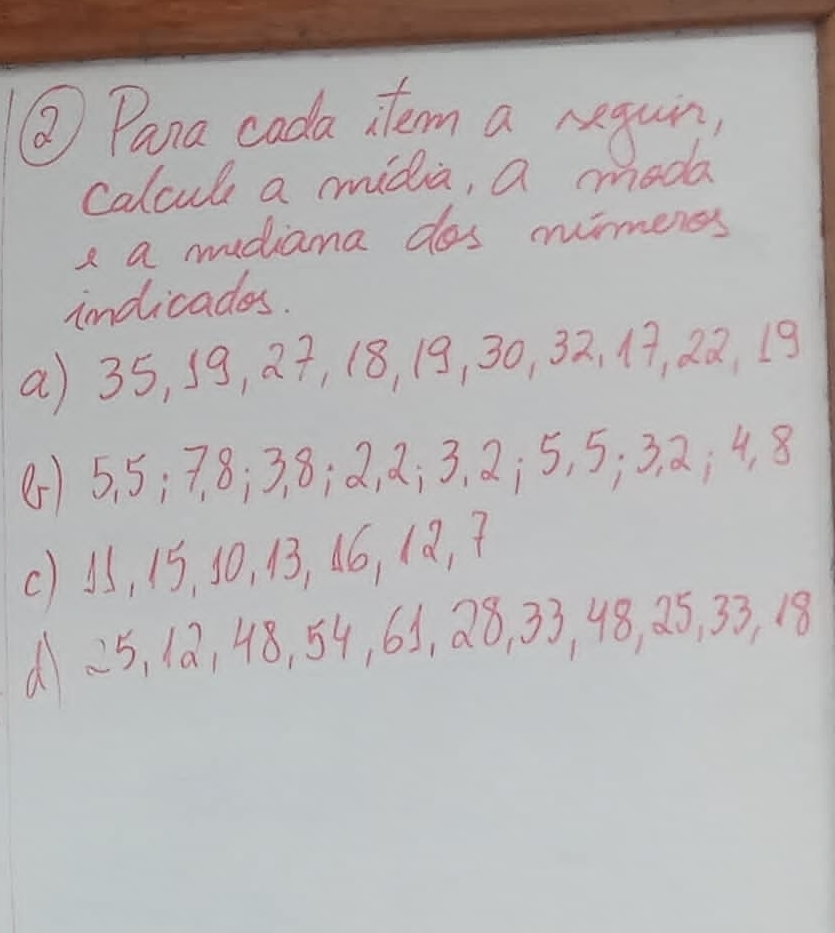 ② Para cada item a seguir,
calcule a média, a moda
e a mediana dos números
indicados.
a) 35, 19, 27, 18, 19, 30, 32, 17, 22, 19
b) 5,5; 7,8; 3,8; 2,2; 3,2; 5,5; 3,2; 4,8
c) 11, 15, 10, 13, 16, 12, 7
d) 25, 12, 48, 54, 61, 28, 33, 48, 25, 33, 18